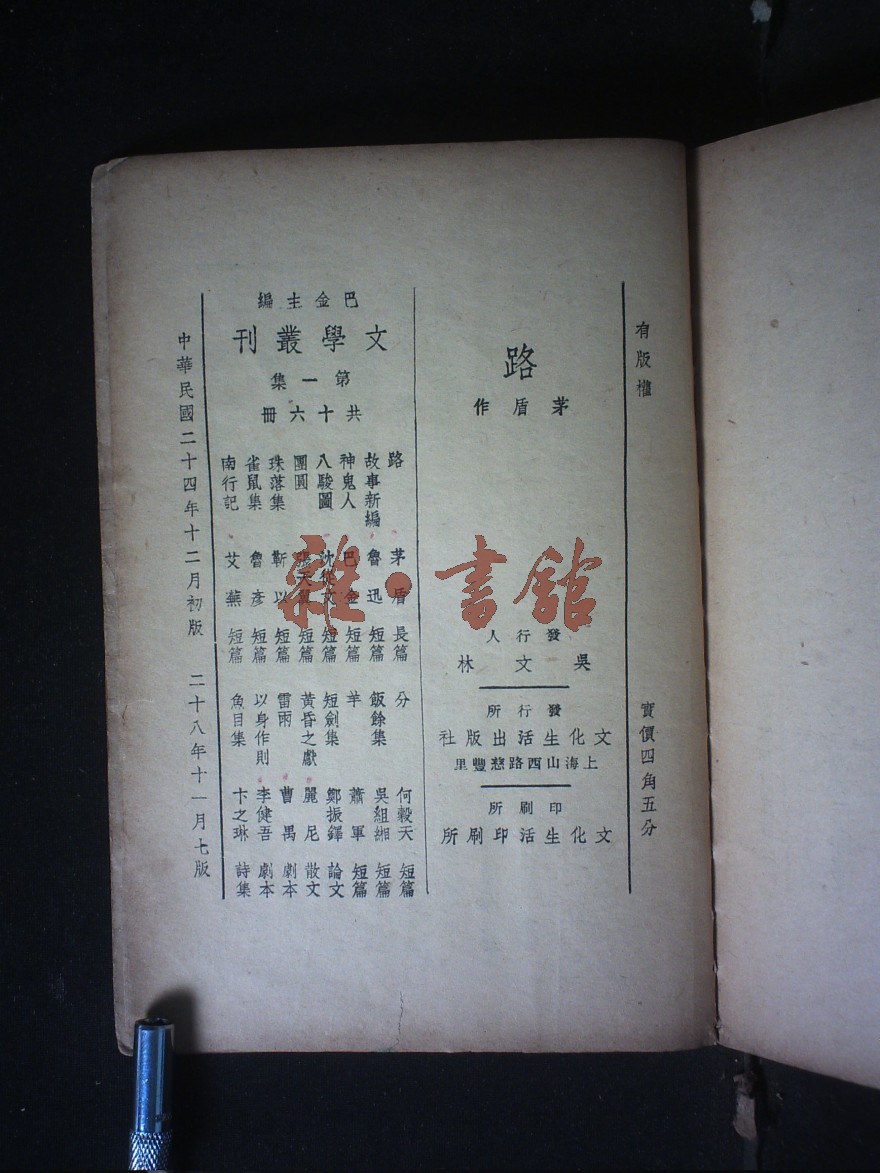 有版權
實價四角五分
路
茅盾作
發行人
吳文林
發行所
文化生活出版社
上海山西路慈豐里
印刷所
文化生活印刷所
巴金主編
文學叢刊
第一集
共十六冊
路 茅盾 長篇
故事新編 魯迅 短篇
神鬼人 巴金 短篇
八駿圖 沈從文 短篇
團圓 張天翼 短篇
珠落集 靳以 短篇
雀鼠集 魯彥 短篇
南行記 艾蕪 短篇
分 何穀天 短篇
飯餘集 吳組緗 短篇
羊 蕭軍 短篇
短劍集 鄭振鐸 論文
黃昏之獻 麗尼 散文
雷雨 曹禺 劇本
以身作則 李健吾 劇本
魚目集 卞之琳 詩集
中華民國二十四年十二月初版 二十八年十一月七版
雜·書館